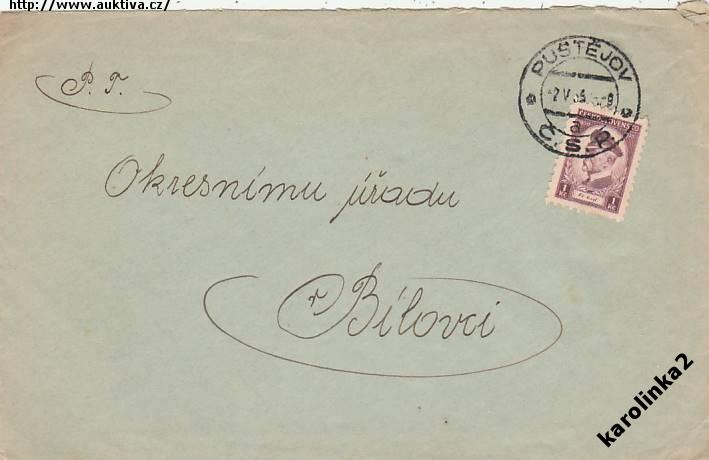 http://www.auktiva.cz/
P. T.
PUSTĚJOV
Č.S.R.
a
ČESKOSLOVENSKO
1 Kč
1 Kč
Okresnímu úřadu
v Bílovci
karolinka2